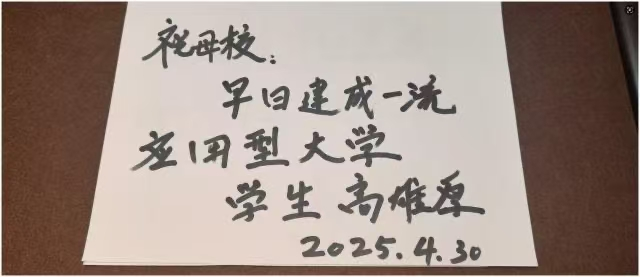 祝母校：
早日建成一流
应用型大学
学生 高雄厚
2025.4.30